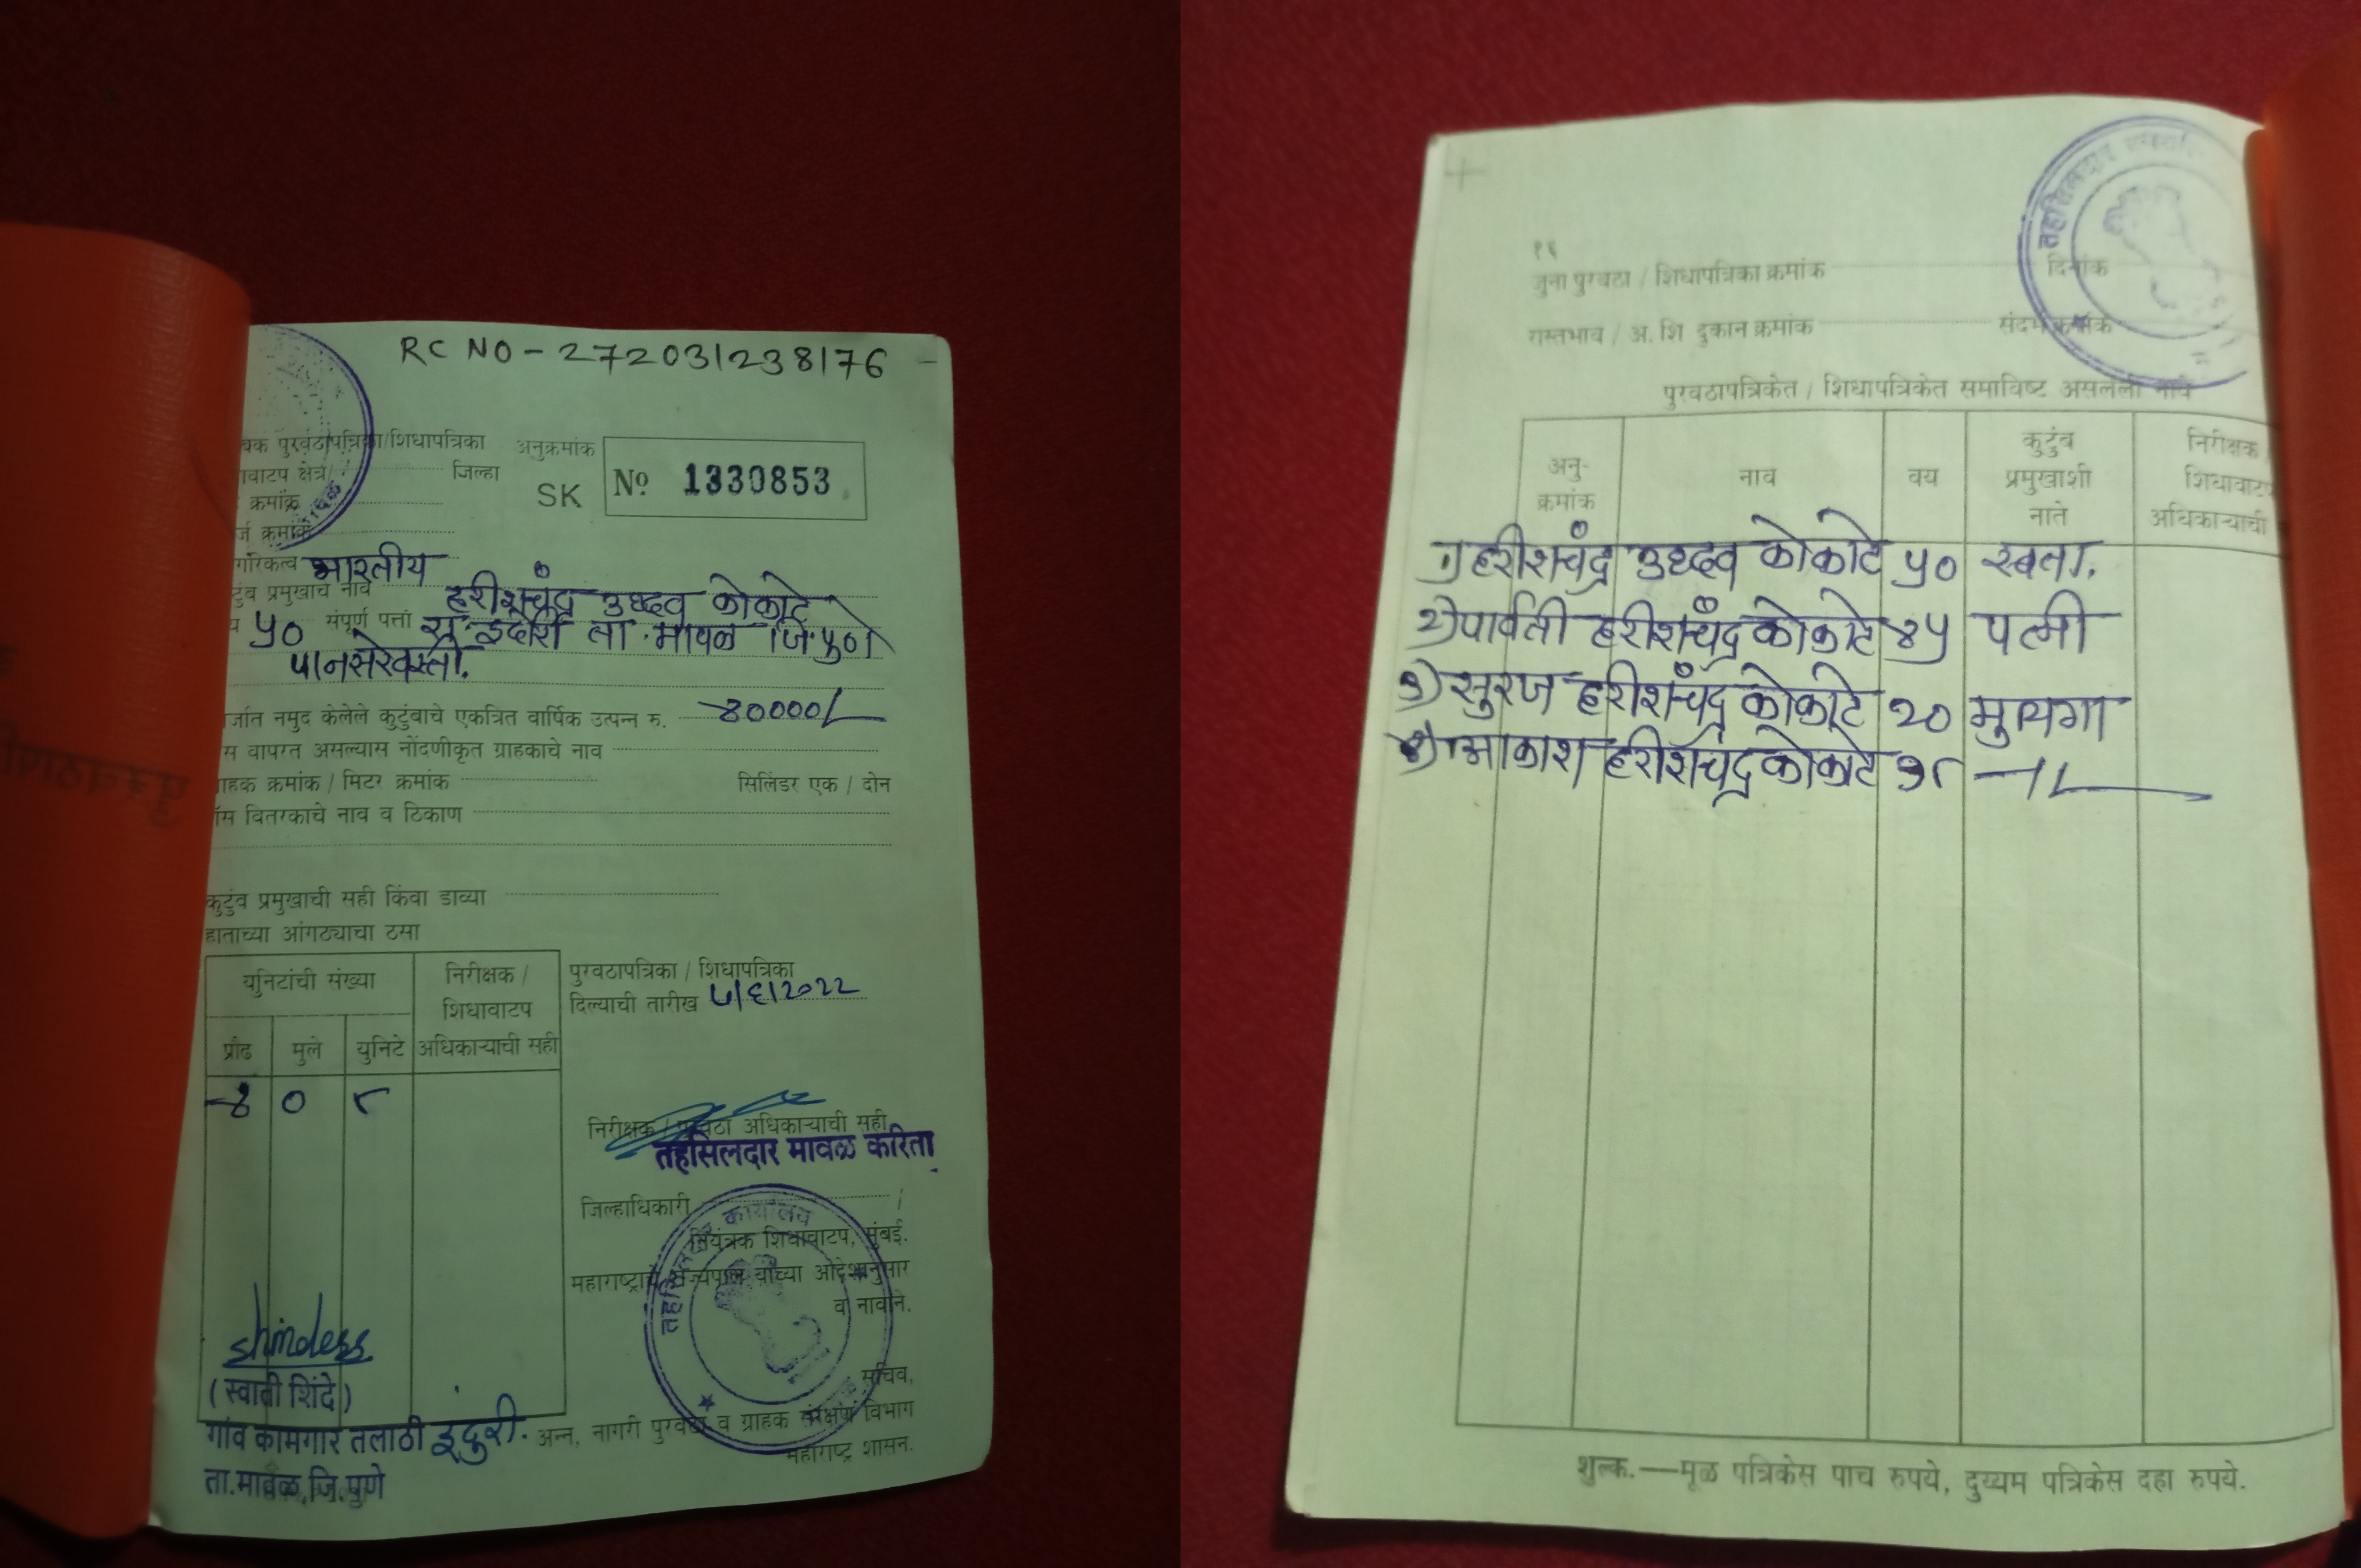 RC NO - 272031238176
पुरवठापत्रिका/शिधापत्रिका अनुक्रमांक
जिल्हा
SK No 1330853
क्रमांक
क्रमांक
भारतीय
प्रमुखाचे नाव हरीशचंद्र उध्दव कोकाटे
५० संपूर्ण पत्ता ता. मावळ जि. पुणे
पानसरेवस्ती.
नमुद केलेले कुटुंबाचे एकत्रित वार्षिक उत्पन्न रु. ४००००/-
वापरत असल्यास नोंदणीकृत ग्राहकाचे नाव
क्रमांक / मिटर क्रमांक सिलिंडर एक / दोन
वितरकाचे नाव व ठिकाण
कुटुंब प्रमुखाची सही किंवा डाव्या
हाताच्या आंगठ्याचा ठसा
युनिटांची संख्या
निरीक्षक /
शिधावाटप
अधिकाऱ्याची सही
प्रौढ मुले युनिटे
४ ०
पुरवठापत्रिका / शिधापत्रिका
दिल्याची तारीख ७/६/२०२२
निरीक्षक / पुरवठा अधिकाऱ्याची सही
तहसिलदार मावळ करिता
जिल्हाधिकारी
नियंत्रक शिधावाटप, मुंबई.
महाराष्ट्राचे राज्यपाल यांच्या आदेशानुसार
व नावाने.
सचिव,
अन्न, नागरी पुरवठा व ग्राहक संरक्षण विभाग
महाराष्ट्र शासन.
(स्वाती शिंदे)
गांव कामगार तलाठी इंदुरी.
ता.मावळ,जि.पुणे
१६
जुना पुरवठा / शिधापत्रिका क्रमांक दिनांक
रास्तभाव / अ. शि दुकान क्रमांक संदर्भ क्रमांक
पुरवठापत्रिकेत / शिधापत्रिकेत समाविष्ट असलेली नावे
अनु-
क्रमांक
नाव
वय
कुटुंब
प्रमुखाशी
नाते
निरीक्षक
शिधावाटप
अधिकाऱ्याची
१) हरीशचंद्र उध्दव कोकाटे ५० स्वतः
२) पार्वती हरीशचंद्र कोकाटे ४५ पत्नी
३) सुरज हरीशचंद्र कोकाटे २० मुलगा
४) आकाश हरीशचंद्र कोकाटे —//—
शुल्क.—मूळ पत्रिकेस पाच रुपये, दुय्यम पत्रिकेस दहा रुपये.